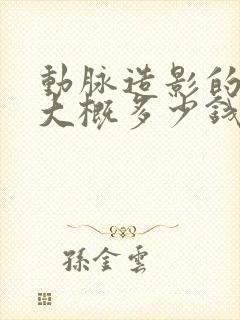 動脉造影的
大概多少錢
孫金雲